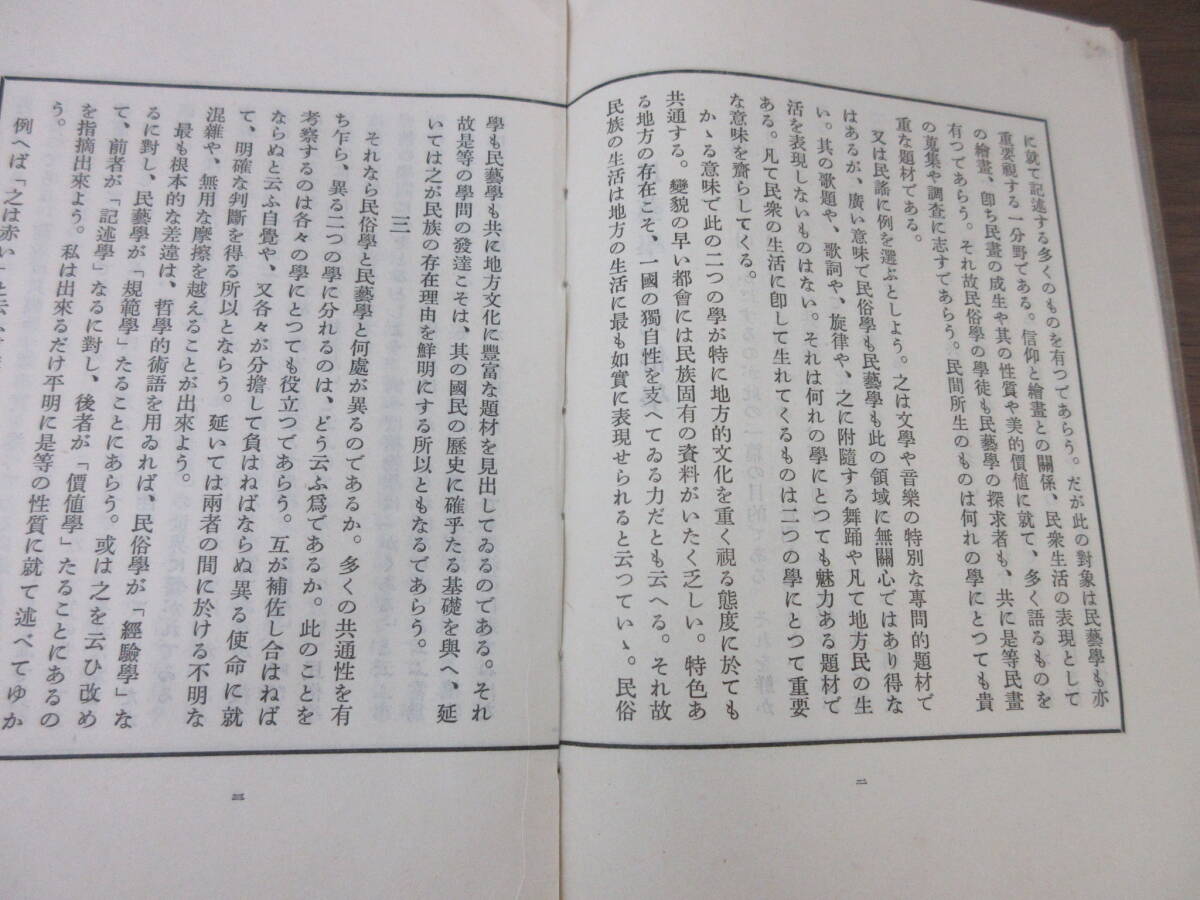 に就て記述する多くのものを有つであらう。だが此の對象は民藝學も亦
重要視する一分野である。信仰と繪畫との關係、民衆生活の表現として
の繪畫、卽ち民畫の成生や其の性質や美的價値に就て、多く語るものを
有つてであらう。それ故民俗學の學徒も民藝學の探求者も、共に是等民畫
の蒐集や調査に志すであらう。民間所生のものは何れの學にとつても貴
重な題材である。
又は民謠に例を選ぶとしよう。之は文學や音樂の特別な專問的題材で
はあるが、廣い意味で民俗學も民藝學も此の領域に無關心ではあり得な
い。其の歌題や、歌詞や、旋律や、之に附隨する舞踊や凡て地方民の生
活を表現しないものはない。それは何れの學にとつても魅力ある題材で
ある。凡て民衆の生活に卽して生れてくるものは二つの學にとつて重要
な意味を齎らしてくる。
かゝる意味で此の二つの學が特に地方的文化を重く視る態度に於ても
共通する。變貌の早い都會には民族固有の資料がいたく乏しい。特色あ
る地方の存在こそ、一國の獨自性を支へてゐる力だとも云へる。それ故
民族の生活は地方の生活に最も如實に表現せられると云つていゝ。民俗
二
學も民藝學も共に地方文化に豐富な題材を見出してゐるのである。それ
故是等の學問の發達こそは、其の國民の歷史に確乎たる基礎を與へ、延
いては之が民族の存在理由を鮮明にする所以ともなるであらう。
三
それなら民俗學と民藝學と何處が異るのであるか。多くの共通性を有
ち乍ら、異る二つの學に分れるのは、どう云ふ爲であるか。此のことを
考察するのは各々の學にとつても役立つであらう。互が補佐し合はねば
ならぬと云ふ自覺や、又各々が分擔して負はねばならぬ異る使命に就
て、明確な判斷を得る所以とならう。延いては兩者の間に於ける不明な
混雜や、無用な摩擦を越えることが出來よう。
最も根本的な差違は、哲學的術語を用ゐれば、民俗學が「經驗學」な
るに對し、民藝學が「規範學」たることにあらう。或は之を云ひ改め
て、前者が「記述學」なるに對し、後者が「價値學」たることにあるの
を指摘出來よう。私は出來るだけ平明に是等の性質に就て述べてゆか
う。
例へば「之は赤い」と云
三